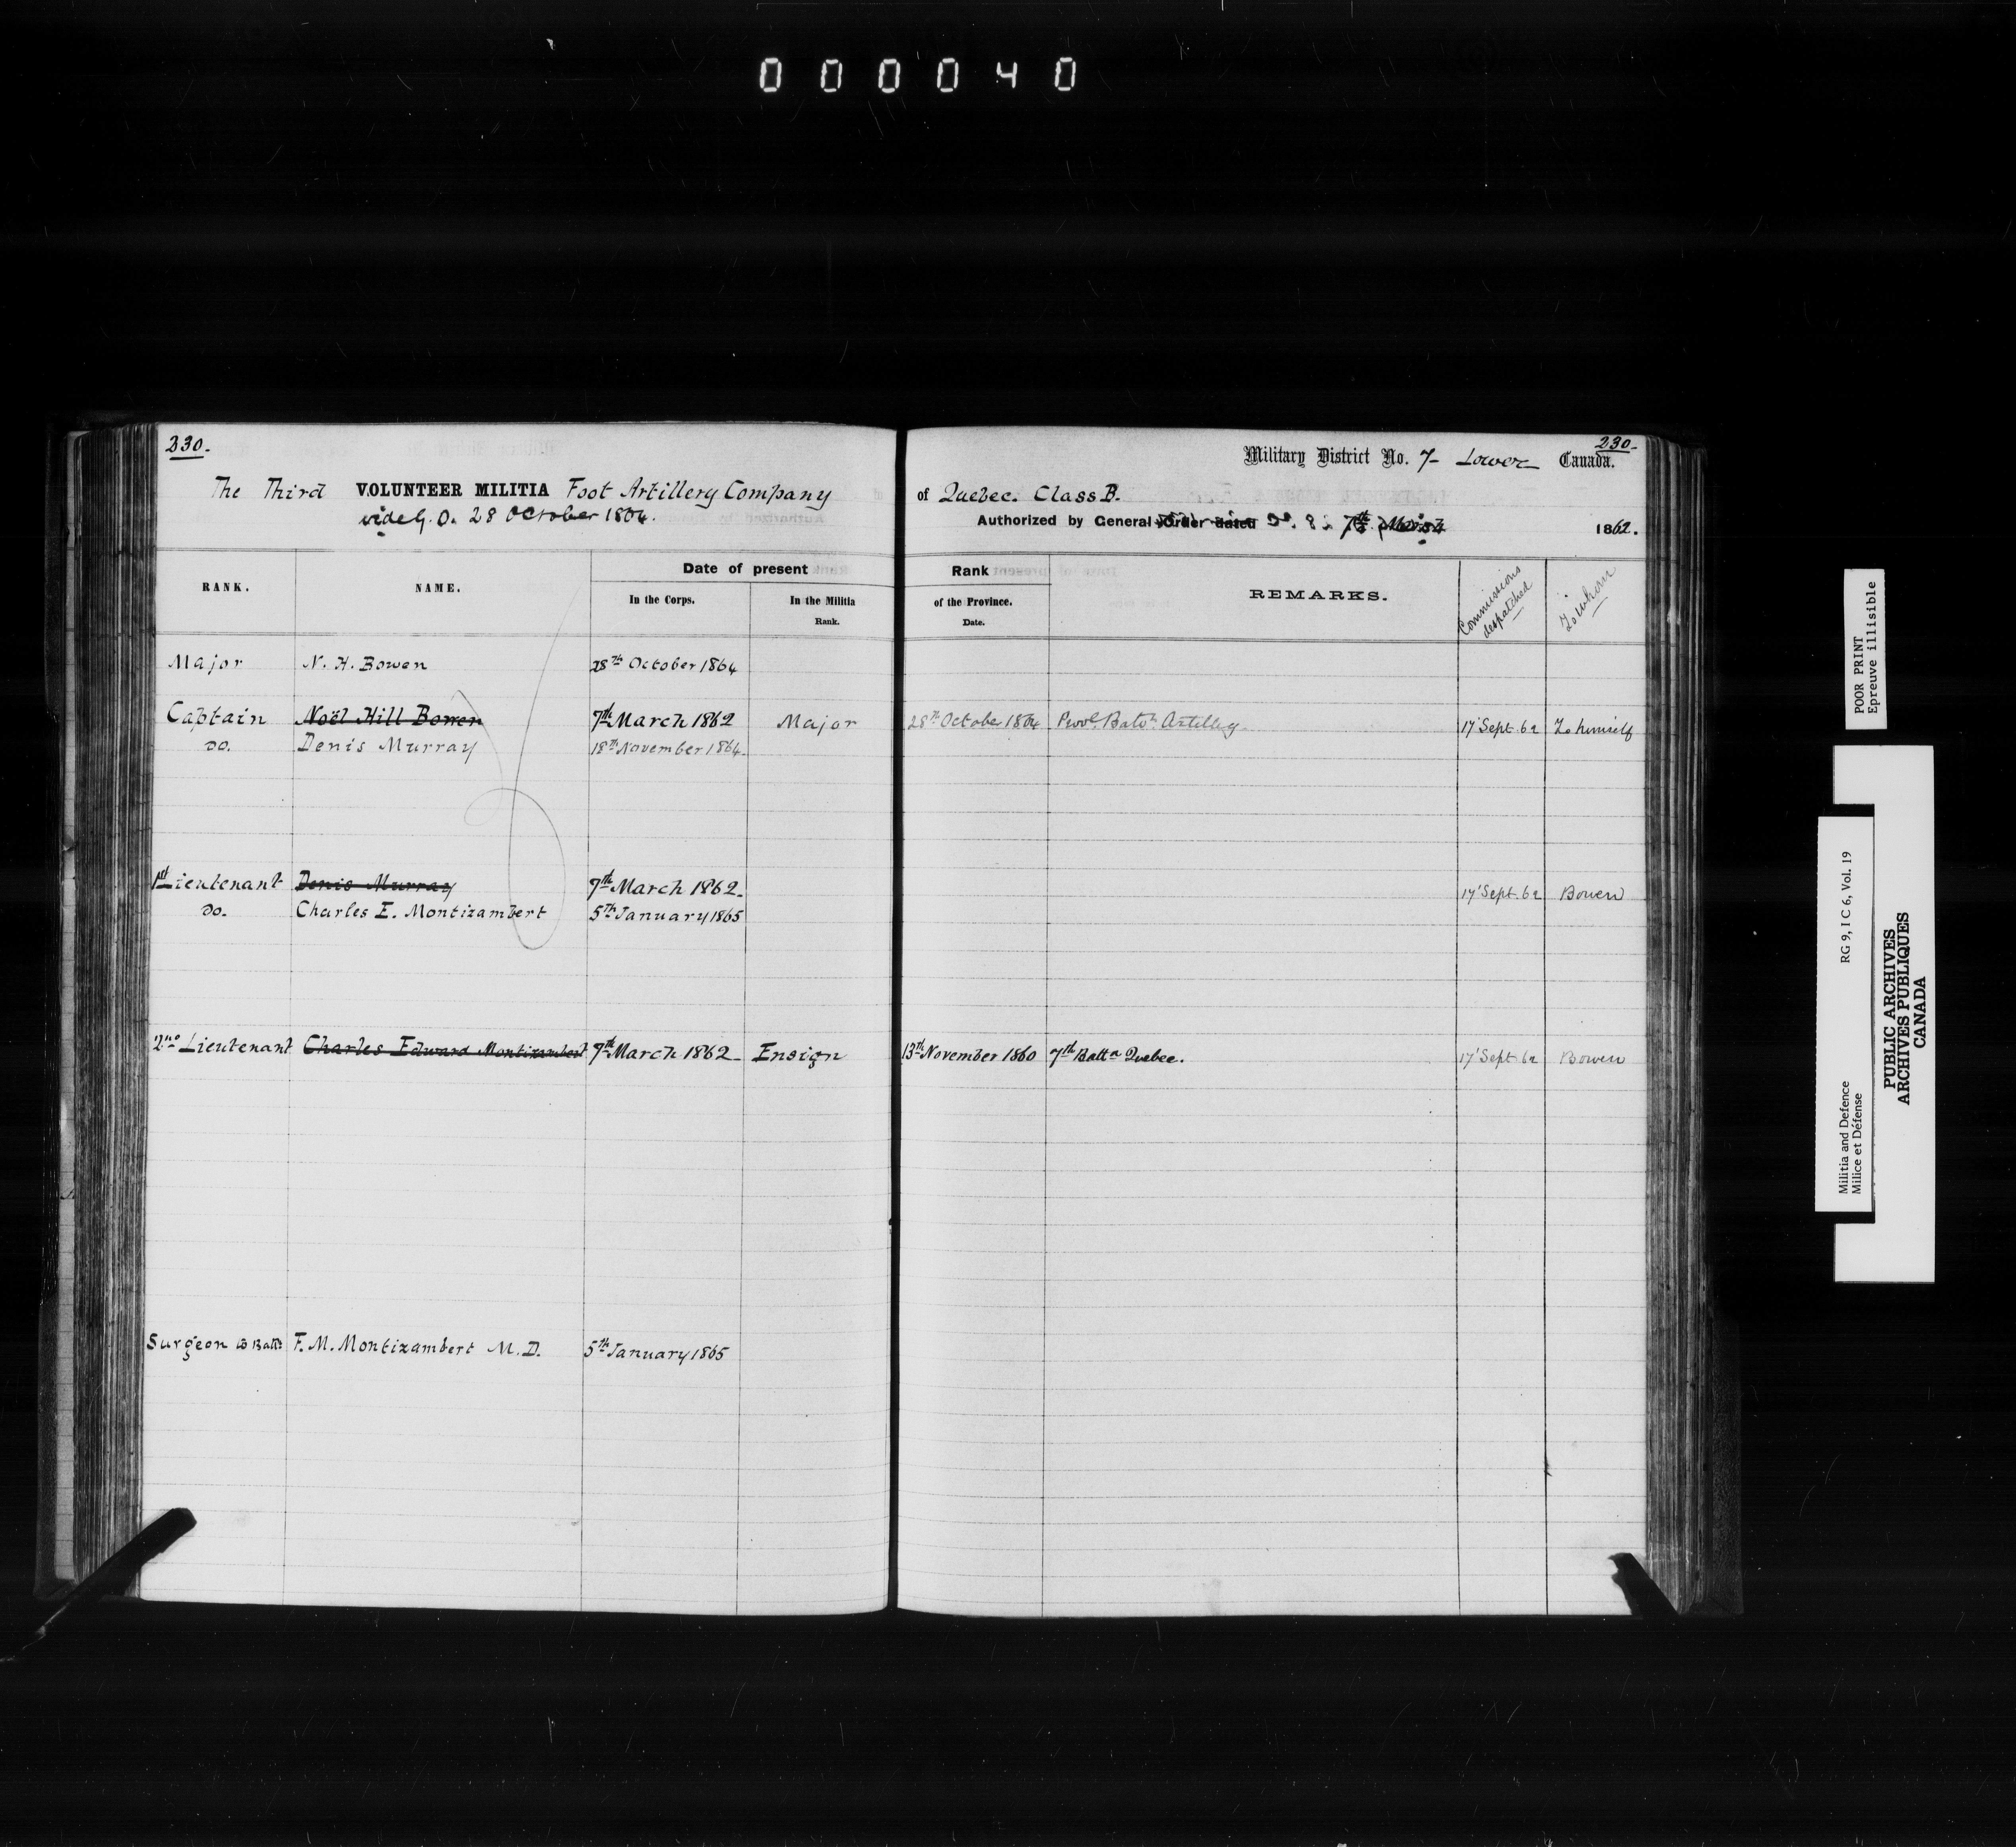 000040
230.
230.
Military District No. 7 Lower Canada.
The Third VOLUNTEER MILITIA Foot Artillery Company of Quebec. Class B.
vide G. O. 28 October 1864.
Authorized by General Order dated 7th March 1862.
RANK. NAME. Date of present Rank REMARKS. Commissions despatched To whom
In the Corps. In the Militia of the Province.
Rank. Date.
Major N. H. Bowen 28th October 1864
Captain Noël Hill Bowen 7th March 1862 Major 28th October 1864 Provl. Batn. Artillery 17 Sept. 62 To himself
Do. Denis Murray 18th November 1864.
1st Lieutenant Denis Murray 7th March 1862. 17 Sept. 62 Bowen
Do. Charles E. Montizambert 5th January 1865
2nd Lieutenant Charles Edward Montizambert 7th March 1862 Ensign 13th November 1860 7th Battn Quebec. 17 Sept. 62 Bowen
Surgeon to Battn F. M. Montizambert M. D. 5th January 1865
POOR PRINT
Epreuve illisible
Militia and Defence RG 9, I C 6, Vol. 19
Milice et Défense
PUBLIC ARCHIVES
ARCHIVES PUBLIQUES
CANADA